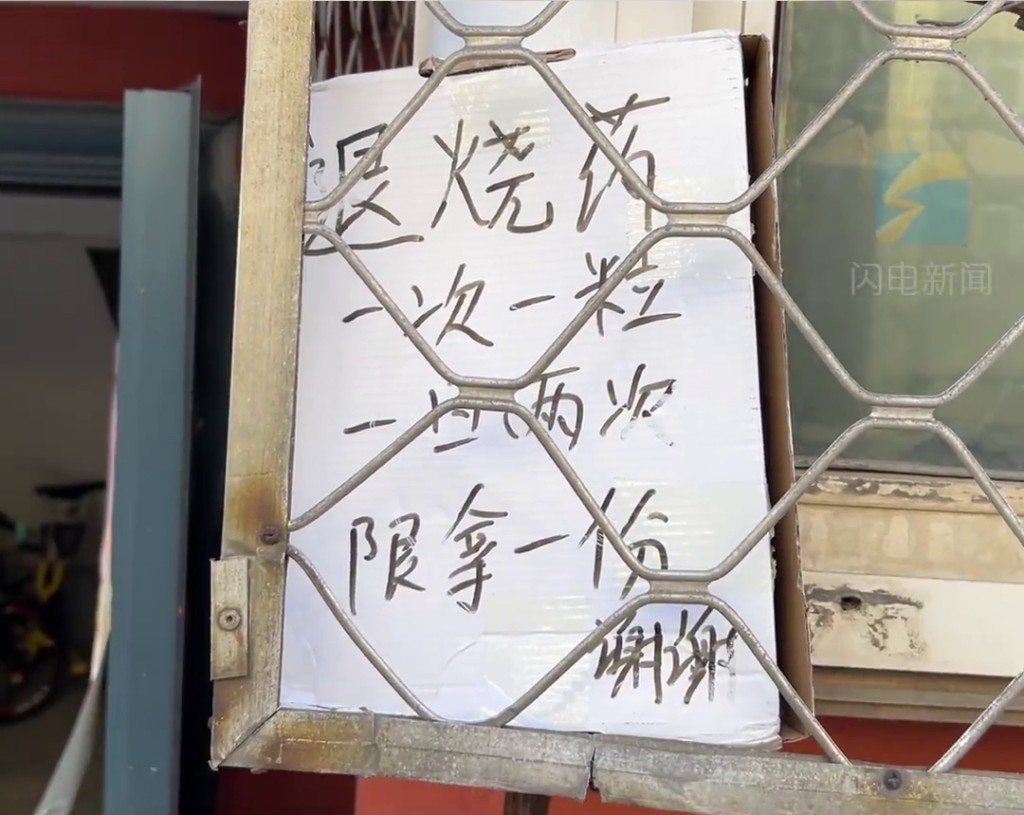 退烧药
一次一粒
一日两次
限拿一份
谢谢
闪电新闻